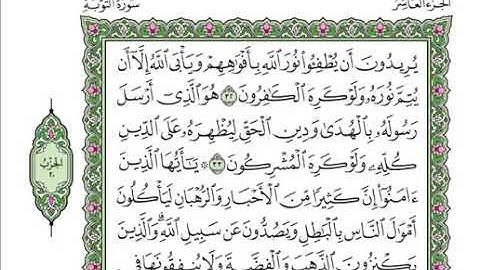 الجزء العاشر
سورة التوبة
يُرِيدُونَ أَن يُطْفِـُٔوا۟ نُورَ ٱللَّهِ بِأَفْوَٰهِهِمْ وَيَأْبَى ٱللَّهُ إِلَّآ أَن
يُتِمَّ نُورَهُۥ وَلَوْ كَرِهَ ٱلْكَٰفِرُونَ ٣٢ هُوَ ٱلَّذِىٓ أَرْسَلَ
رَسُولَهُۥ بِٱلْهُدَىٰ وَدِينِ ٱلْحَقِّ لِيُظْهِرَهُۥ عَلَى ٱلدِّينِ
كُلِّهِۦ وَلَوْ كَرِهَ ٱلْمُشْرِكُونَ ٣٣ ۞ يَٰٓأَيُّهَا ٱلَّذِينَ
ءَامَنُوٓا۟ إِنَّ كَثِيرًا مِّنَ ٱلْأَحْبَارِ وَٱلرُّهْبَانِ لَيَأْكُلُونَ
أَمْوَٰلَ ٱلنَّاسِ بِٱلْبَٰطِلِ وَيَصُدُّونَ عَن سَبِيلِ ٱللَّهِ ۗ وَٱلَّذِينَ
يَكْنِزُونَ ٱلذَّهَبَ وَٱلْفِضَّةَ وَلَا يُنفِقُونَهَا فِى
الحزب
٢٠